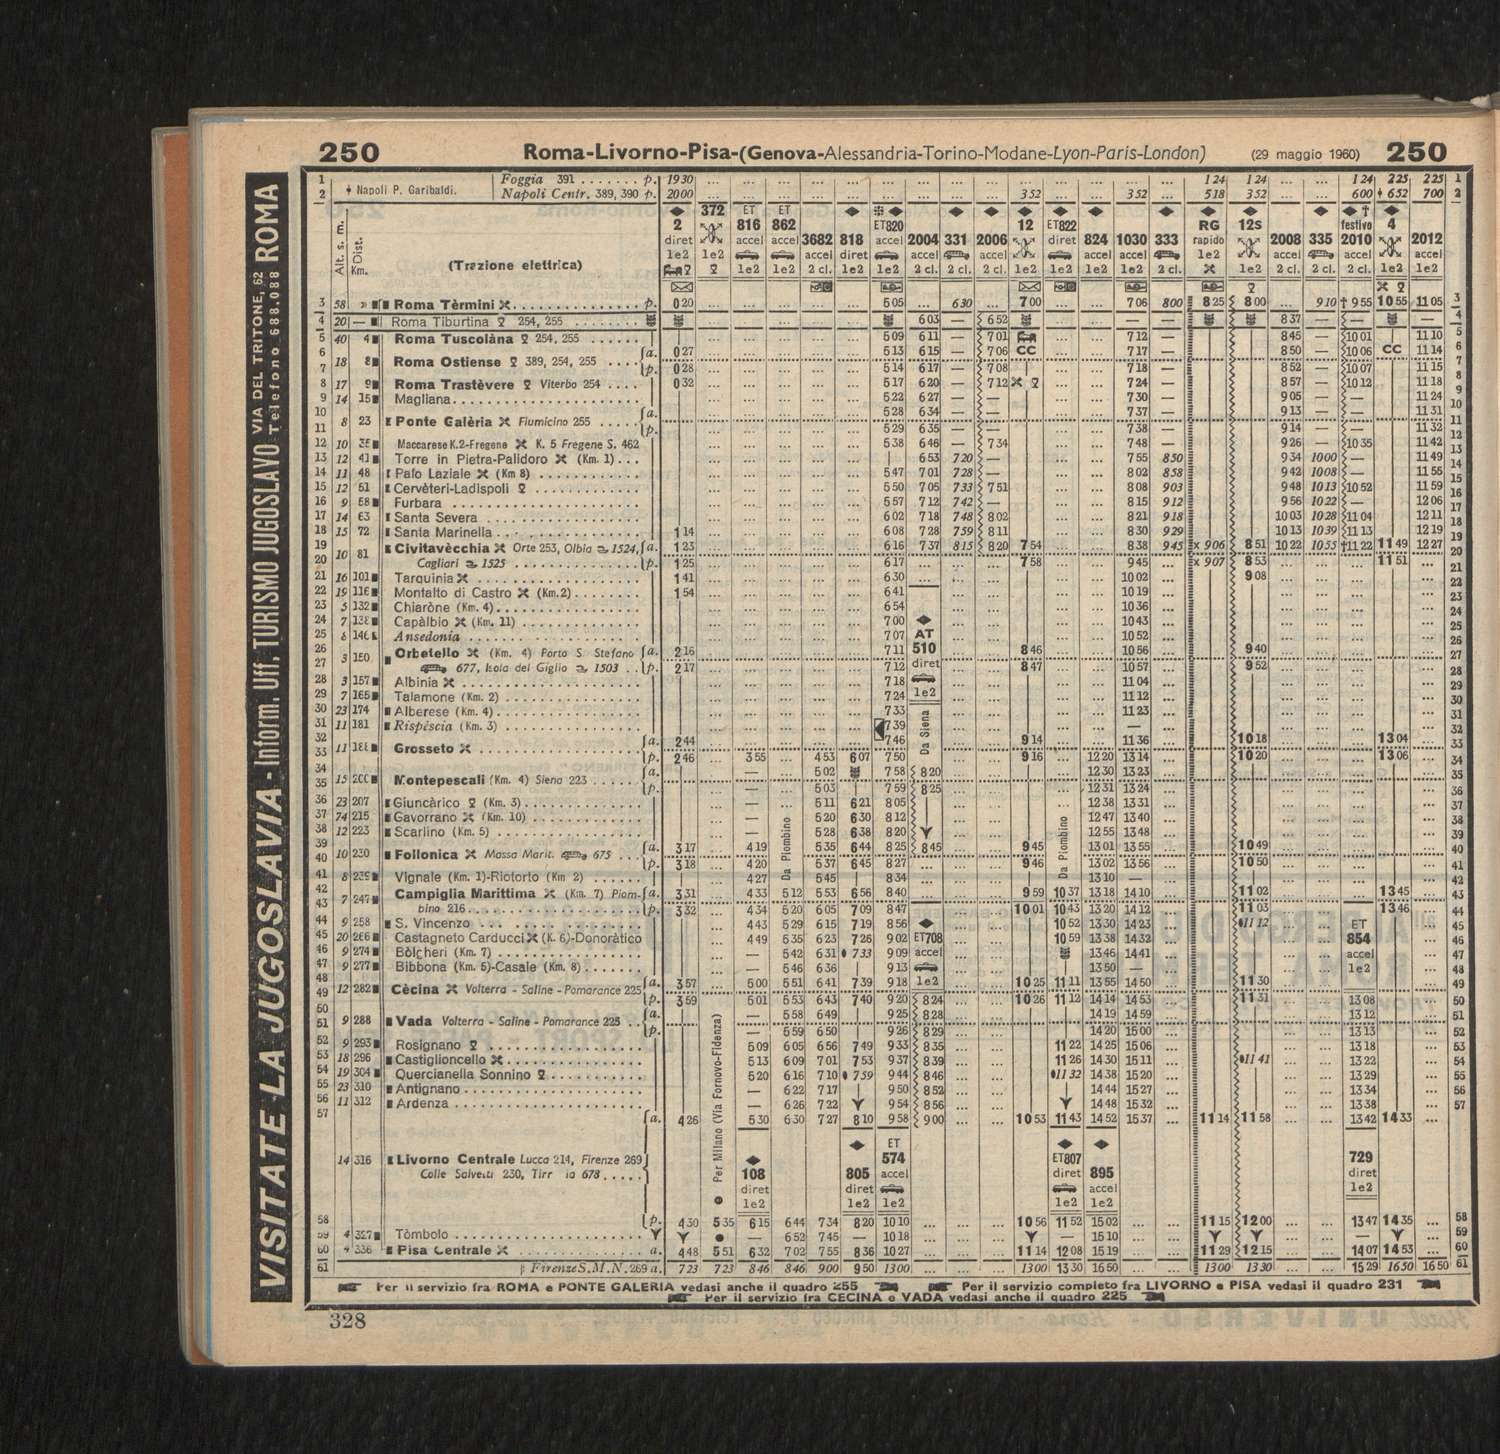 250 Roma-Livorno-Pisa-(Genova-Alessandria-Torino-Modane-Lyon-Paris-London) (29 maggio 1960) 250
VISITATE LA JUGOSLAVIA - Inform. Uff. TURISMO JUGOSLAVO VIA DEL TRITONE, 62 Telefono 688.088 ROMA
1 Foggia 391 ....... p. 19 30 ... 1 24 1 24 ... ... 1 24 2 25 2 25 1
2 Napoli P. Garibaldi. Napoli Centr. 389, 390 p. 20 00 ... 3 52 ... 3 52 ... 5 18 3 52 ... ... 6 00 6 52 7 00 2
Alt. s. m. Dist. Km. (Trazione elettrica)
2 diret 1e2
372 1e2
ET 816 accel 1e2
ET 862 accel 1e2
3682 accel 2 cl.
818 diret 1e2
ET820 accel 1e2
2004 accel 2 cl.
331 2 cl.
2006 accel 2 cl.
12 1e2
ET822 diret 1e2
824 accel 1e2
1030 accel 1e2
333 2 cl.
RG rapido 1e2
12s 1e2
2008 accel 2 cl.
335 2 cl.
festivo 2010 accel 2 cl.
4 1e2
2012 accel 1e2
3 58 Roma Tèrmini p. 0 20 5 05 ... 6 30 ... 7 00 7 06 8 00 8 25 8 00 ... 9 10 9 55 10 55 11 05 3
4 20 — Roma Tiburtina 254, 255 6 03 — 6 52 — — — 8 37 — — — — 4
5 40 4 Roma Tuscolàna 254, 255 5 09 6 11 — 7 01 7 12 — 8 45 — 10 01 11 10 5
6 18 8 Roma Ostiense 389, 254, 255 a. 0 27 5 13 6 15 — 7 06 CC 7 17 — 8 50 — 10 06 CC 11 14 6
7 p. 0 28 5 14 6 17 — 7 08 7 18 — 8 52 — 10 07 11 15 7
8 17 9 Roma Trastèvere Viterbo 254 0 32 5 17 6 20 — 7 12 7 24 — 8 57 — 10 12 11 18 8
9 14 15 Magliana 5 22 6 27 — 7 30 — 9 05 — 11 24 9
10 8 23 Ponte Galèria Fiumicino 255 a. 5 28 6 34 — 7 37 — 9 13 — 11 31 10
11 p. 5 29 6 35 — 7 38 — 9 14 — 11 32 11
12 10 35 Maccarese K.2-Fregene K. 5 Fregene S. 462 5 38 6 46 — 7 34 7 48 — 9 26 — 10 35 11 42 12
13 12 41 Torre in Pietra-Palidoro (Km. 1) 6 53 7 20 — 7 55 8 50 9 34 10 00 — 11 49 13
14 11 48 Palo Laziale (Km 8) 5 47 7 01 7 28 — 8 02 8 58 9 42 10 08 — 11 55 14
15 12 51 Cervèteri-Ladispoli 5 50 7 05 7 33 7 51 8 08 9 03 9 48 10 13 10 52 11 59 15
16 9 58 Furbara 5 57 7 12 7 42 — 8 15 9 12 9 56 10 22 — 12 06 16
17 14 63 Santa Severa 6 02 7 18 7 48 8 02 8 21 9 18 10 03 10 28 11 04 12 11 17
18 15 72 Santa Marinella 1 14 6 08 7 28 7 59 8 11 8 30 9 29 10 13 10 39 11 13 12 19 18
19 10 81 Civitavècchia Orte 253, Olbia 1524, a. 1 23 6 16 7 37 8 15 8 20 7 54 8 38 9 45 x 9 06 8 51 10 22 10 55 11 22 11 49 12 27 19
20 Cagliari 1525 p. 1 25 6 17 7 58 9 45 x 9 07 8 53 11 51 20
21 16 101 Tarquinia 1 41 6 30 10 02 9 08 21
22 19 116 Montalto di Castro (Km.2) 1 54 6 41 10 19 22
23 5 132 Chiaròne (Km. 4) 6 54 10 36 23
24 7 138 Capàlbio (Km. 11) 7 00 10 43 24
25 Ansedonia 7 07 AT 10 52 25
26 3 150 Orbetello (Km. 4) Porto S. Stefano a. 2 16 7 11 510 8 46 10 56 9 40 26
27 677, Isola del Giglio 1503 p. 2 17 7 12 diret 8 47 10 57 9 52 27
28 3 157 Albinia 7 18 11 04 28
29 7 165 Talamone (Km. 2) 7 24 1e2 11 12 29
30 23 174 Alberese (Km. 4) 7 33 11 23 30
31 11 181 Rispèscia (Km. 3) 7 39 — 31
32 11 188 Grosseto a. 2 44 7 46 Da Siena 9 14 11 36 10 18 13 04 32
33 p. 2 46 3 55 4 53 6 07 7 50 9 16 12 20 13 14 10 20 13 06 33
34 15 200 Montepescali (Km. 4) Siena 223 a. — 5 02 7 58 8 20 12 30 13 23 34
35 p. — 5 03 7 59 8 25 12 31 13 24 35
36 23 207 Giuncàrico (Km. 3) — 5 11 6 21 8 05 12 38 13 31 36
37 74 215 Gavorrano (Km. 10) — 5 20 6 30 8 12 12 47 13 40 37
38 12 223 Scarlino (Km. 5) — 5 28 6 38 8 20 12 55 13 48 38
39 10 230 Follonica Massa Marit. 675 a. 3 17 4 19 5 35 6 44 8 25 8 45 9 45 13 01 13 55 10 49 39
40 p. 3 18 4 20 5 37 6 45 8 27 9 46 13 02 13 56 10 50 40
41 8 239 Vignale (Km. 1)-Riotorto (Km 2) 4 27 Da Piombino 5 45 8 34 Da Piombino 13 10 — 41
42 7 247 Campiglia Marittima (Km. 7) Piom- a. 3 31 4 33 5 12 5 53 6 56 8 40 9 59 10 37 13 18 14 10 11 02 13 45 42
43 bino 216 p. 3 32 4 34 5 20 6 05 7 09 8 47 10 01 10 43 13 20 14 12 11 03 13 46 43
44 9 258 S. Vincenzo 4 43 5 29 6 15 7 19 8 56 10 52 13 30 14 23 11 12 ET 44
45 20 266 Castagneto Carducci (K. 6)-Donoràtico 4 49 5 35 6 23 7 26 9 02 ET708 10 59 13 38 14 32 854 45
46 9 274 Bòlgheri (Km. 7) — 5 42 6 31 7 33 9 09 accel 13 46 14 41 accel 46
47 9 277 Bibbona (Km. 5)-Casale (Km. 8) — 5 46 6 36 9 13 13 50 — 1e2 47
48 12 282 Cècina Volterra - Saline - Pomarance 225 a. 3 57 5 00 5 51 6 41 7 39 9 18 1e2 10 25 11 11 13 55 14 50 11 30 48
49 p. 3 59 5 01 5 53 6 43 7 40 9 20 8 24 10 26 11 12 14 14 14 53 11 31 13 08 49
50 9 288 Vada Volterra - Saline - Pomarance 225 a. — 5 58 6 49 9 25 8 28 14 19 14 59 13 12 50
51 p. — 5 59 6 50 9 26 8 29 14 20 15 00 13 13 51
52 9 293 Rosignano 5 09 6 05 6 56 7 49 9 33 8 35 11 22 14 25 15 06 13 18 52
53 18 296 Castiglioncello 5 13 6 09 7 01 7 53 9 37 8 39 11 26 14 30 15 11 11 41 13 22 53
54 19 304 Quercianella Sonnino 5 20 6 16 7 10 7 59 9 44 8 46 11 32 14 38 15 20 13 29 54
55 23 310 Antignano — 6 22 7 17 9 50 8 52 14 44 15 27 13 34 55
56 11 312 Ardenza — 6 26 7 22 9 54 8 56 14 48 15 32 13 38 56
57 a. 4 26 5 30 6 30 7 27 8 10 9 58 9 00 10 53 11 43 14 52 15 37 11 14 11 58 13 42 14 33 57
Per Milano (Via Fornovo-Fidenza)
14 316 Livorno Centrale Lucca 214, Firenze 269
Colle Salvetti 230, 678
108 diret 1e2
805 diret 1e2
ET 574 accel 1e2
ET807 diret 1e2
895 accel 1e2
729 diret 1e2
58 p. 4 30 5 35 6 15 6 44 7 34 8 20 10 10 10 56 11 52 15 02 11 15 12 00 13 47 14 35 58
59 4 327 Tòmbolo 6 52 7 45 — 10 18 — 15 10 — 59
60 336 Pisa Centrale a. 4 48 5 51 6 32 7 02 7 55 8 36 10 27 11 14 12 08 15 19 11 29 12 15 14 07 14 53 60
61 Firenze S.M.N. 269 a. 7 23 7 23 8 46 8 46 9 00 9 50 13 00 13 00 13 30 16 50 13 00 13 30 15 29 16 50 16 50 61
Per il servizio fra ROMA e PONTE GALERIA vedasi anche il quadro 255 Per il servizio completo fra LIVORNO e PISA vedasi il quadro 231
Per il servizio fra CECINA e VADA vedasi anche il quadro 225
328